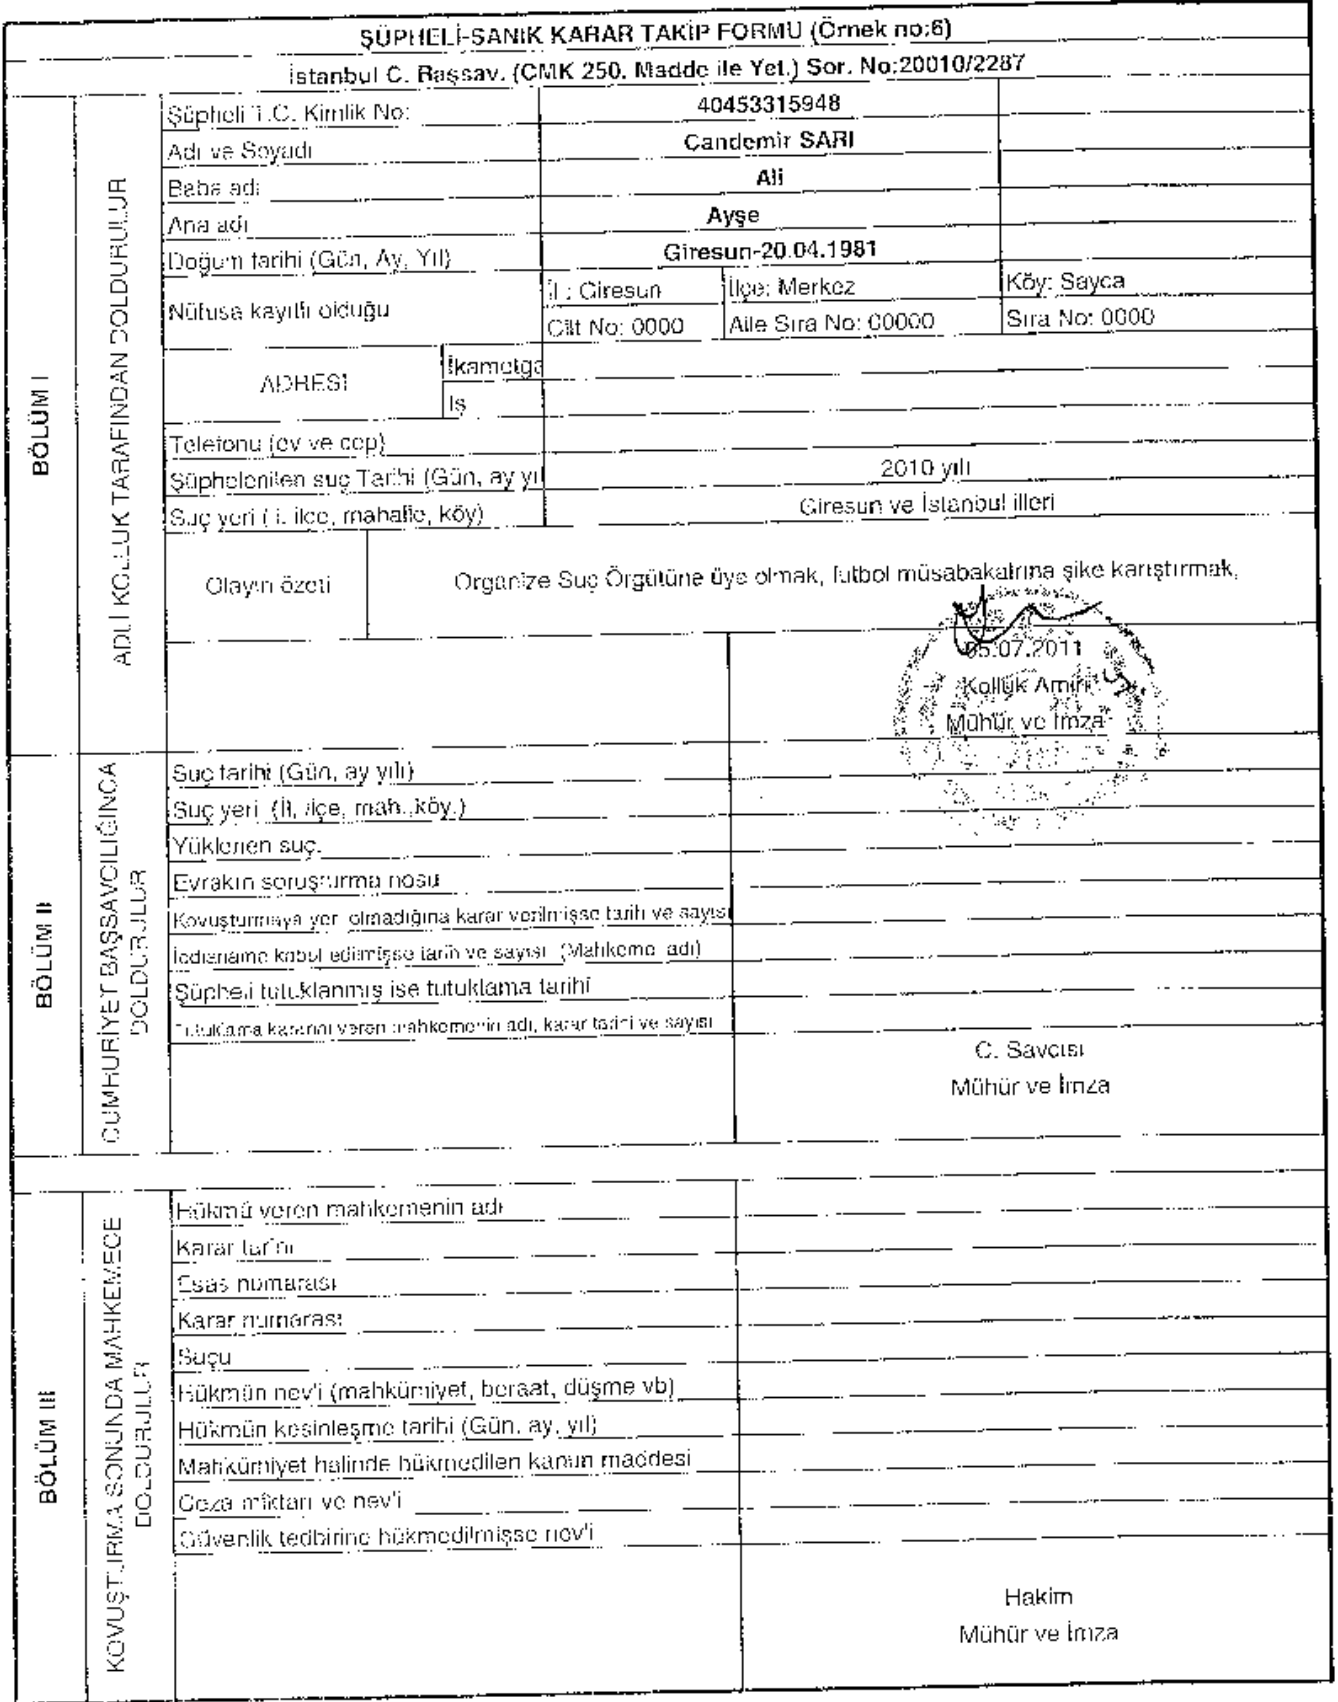 ŞÜPHELİ-SANIK KARAR TAKİP FORMU (Örnek no:6)
İstanbul C. Başsav. (CMK 250. Madde ile Yet.) Sor. No:20010/2287
BÖLÜM I
ADLİ KOLLUK TARAFINDAN DOLDURULUR
Şüpheli T.C. Kimlik No: 40453315948
Adı ve Soyadı Candemir SARI
Baba adı Ali
Ana adı Ayşe
Doğum tarihi (Gün, Ay, Yıl) Giresun-20.04.1981
Nüfusa kayıtlı olduğu
İl : Giresun İlçe: Merkez Köy: Sayca
Cilt No: 0000 Aile Sıra No: 00000 Sıra No: 0000
ADRESİ
İkametga
İş
Telefonu (ev ve cep)
Şüphelenilen suç Tarihi (Gün, ay yıl 2010 yılı
Suç yeri ( İl, ilçe, mahalle, köy) Giresun ve İstanbul illeri
Olayın özeti Organize Suç Örgütüne üye olmak, futbol müsabakalrına şike karıştırmak,
05.07.2011
Kolluk Amiri
Mühür ve İmza
BÖLÜM II
CUMHURİYET BAŞSAVCILIĞINCA DOLDURULUR
Suç tarihi (Gün, ay yılı)
Suç yeri (İl, ilçe, mah.,köy.)
Yüklenen suç.
Evrakın soruşturma nosu
Kovuşturmaya yer olmadığına karar verilmişse tarih ve sayısı
İddianame kabul edilmişse tarih ve sayısı (Mahkeme adı)
Şüpheli tutuklanmış ise tutuklama tarihi
Tutuklama kararını veren mahkemenin adı, karar tarihi ve sayısı
C. Savcısı
Mühür ve İmza
BÖLÜM III
KOVUŞTURMA SONUNDA MAHKEMECE DOLDURULUR
Hükmü veren mahkemenin adı
Karar tarihi
Esas numarası
Karar numarası
Suçu
Hükmün nev'i (mahkümiyet, beraat, düşme vb)
Hükmün kesinleşme tarihi (Gün, ay, yıl)
Mahkümiyet halinde hükmedilen kanun maddesi
Ceza miktarı ve nev'i
Güvenlik tedbirine hükmedilmişse nev'i
Hakim
Mühür ve İmza